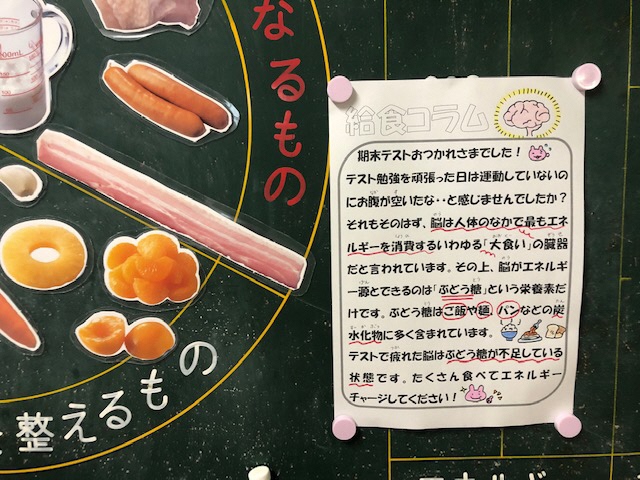 なるもの
を整えるもの
給食コラム
期末テストおつかれさまでした！
テスト勉強を頑張った日は運動していないの
にお腹が空いたな・・と感じませんでしたか？
それもそのはず、脳は人体のなかで最もエネ
ルギーを消費するいわゆる「大食い」の臓器
だと言われています。その上、脳がエネルギ
ー源とできるのは「ぶどう糖」という栄養素だ
けです。ぶどう糖はご飯や麺、パンなどの炭
水化物に多く含まれています。
テストで疲れた脳はぶどう糖が不足している
状態です。たくさん食べてエネルギー
チャージしてください！